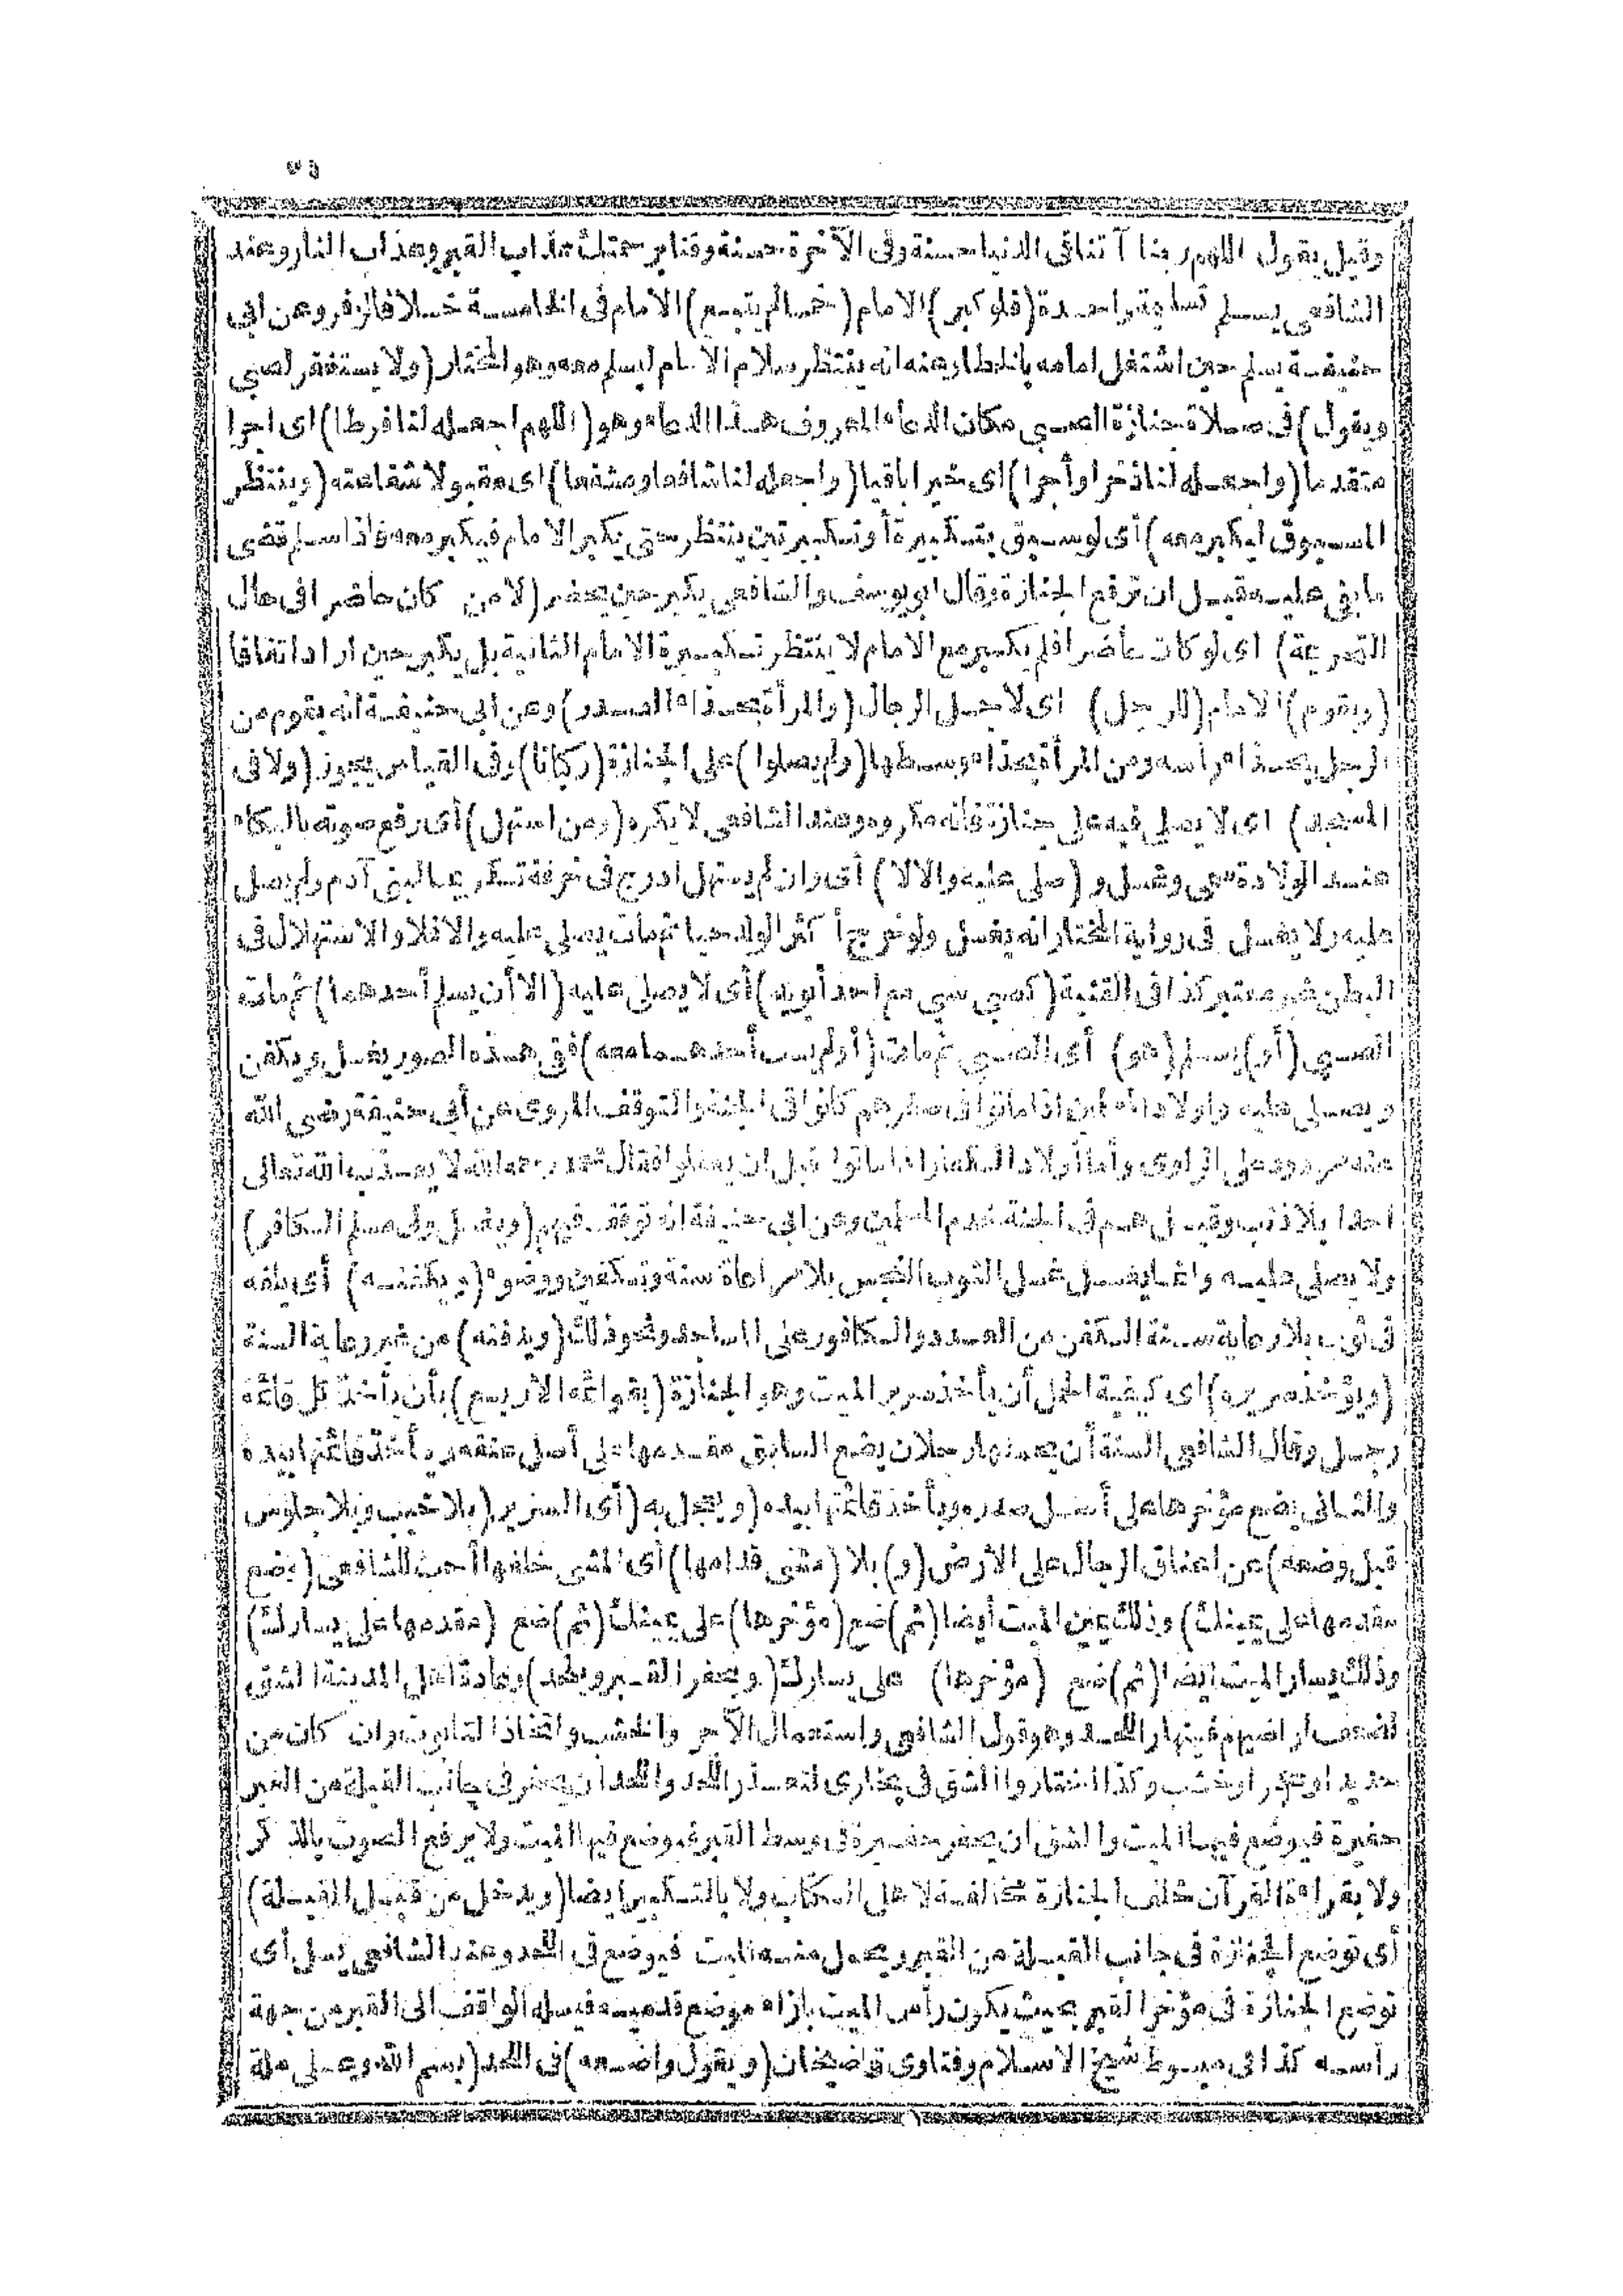 ٥٣
وقيل يقول اللهم ربنا آتنا فى الدنيا حسنة وفى الآخرة حسنة وقنا برحمتك عذاب القبر وعذاب النار وعند
الشافعى يسلم تسليمة واحدة (فلو كبر) الامام (خمسا لم يتبع) الامام فى الخامسة خلافا لزفر وعن ابى
حنيفة يسلم حين اشتغل امامه بالخطا وعنه انه ينتظر سلام الامام ليسلم معه وهو المختار (ولا يستغفر لصبى
ويقول) فى صلاة جنازة الصبى مكان الدعاء المعروف هذا الدعاء وهو (اللهم اجعله لنا فرطا) اى اجرا
متقدما (واجعله لنا ذخرا وأجرا) اى خيرا باقيا (واجعله لنا شافعا ومشفعا) اى مقبولا شفاعته (وينتظر
المسبوق ليكبر معه) أى لو سبق بتكبيرة أو تكبيرتين ينتظر حتى يكبر الامام فيكبر معه فاذا سلم قضى
ما بقى عليه قبل ان ترفع الجنازة وقال ابو يوسف والشافعى يكبر حين يحضر (لا من كان حاضرا فى حال
التحريمة) اى لو كان حاضرا فلم يكبر مع الامام لا ينتظر تكبيرة الامام الثانية بل يكبر حين اراد اتفاقا
(ويقوم) الامام (للرجل) اى لاجل الرجال (والمرأة بحذاء الصدر) وعن ابى حنيفة انه يقوم من
الرجل بحذاء رأسه ومن المرأة بحذاء وسطها (ولم يصلوا) على الجنازة (ركبانا) وفى القياس يجوز (ولا فى
المسجد) اى لا يصلى فيه على جنازة فانه مكروه وعند الشافعى لا يكره (ومن استهل) أى رفع صوته بالبكاء
عند الولادة سمى وغسل و (صلى عليه والا لا) أى وان لم يستهل ادرج فى خرقة تكريما لبنى آدم ولم يصل
عليه ولا يغسل فى رواية المختار انه يغسل ولو خرج أكثر الولد حيا ثم مات يصلى عليه والا فلا والاستهلال فى
البطن غير معتبر كذا فى القنية (كصبى سبى مع احد أبويه) أى لا يصلى عليه (الا أن يسلم أحدهما) ثم مات
الصبى (أو) يسلم (هو) أى الصبى ثم مات (أو لم يسب أحدهما معه) ففى هذه الصور يغسل ويكفن
ويصلى عليه واولاد المسلمين اذا ماتوا فى صغرهم كانوا فى الجنة والتوقف المروى عن أبى حنيفة رضى الله
عنه مردود على الراوى وأما أولاد الكفار اذا ماتوا قبل ان يعقلوا فقال محمد رحمه الله لا يعذب الله تعالى
احدا بلا ذنب وقيل هم فى الجنة خدم المسلمين وعن ابى حنيفة انه توقف فيهم (ويغسل ولى مسلم الكافر)
ولا يصلى عليه وانما يغسل غسل الثوب النجس بلا مراعاة سنة وتكفين ووضوء (ويكفنه) أى يلفه
فى ثوب بلا رعاية سنة الكفن من العدد والكافور على المساجد ونحو ذلك (ويدفنه) من غير رعاية السنة
(ويؤخذ سريره) اى كيفية الحمل أن يأخذ سرير الميت وهو الجنازة (بقوائمه الاربع) بأن يأخذ كل قائمة
رجل وقال الشافعى السنة أن يحملها رجلان يضع السابق مقدمها على أصل عنقه ويأخذ قائمتها بيده
والثانى يضع مؤخرها على أصل صدره ويأخذ قائمتها بيده (ويعجل به (أى السرير (بلا خبب وبلا جلوس
قبل وضعه) عن اعناق الرجال على الارض (و) بلا (مشى قدامها) أى المشى خلفها أحب للشافعى (يضع
مقدمها على يمينك) وذلك يمين الميت أيضا (ثم) ضع (مؤخرها) على يمينك (ثم) ضع (مقدمها على يسارك)
وذلك يسار الميت ايضا (ثم) ضع (مؤخرها) على يسارك (ويحفر القبر ويلحد) وعادة اهل المدينة الشق
لضعف اراضيهم فينهار اللحد وهو قول الشافعى واستعمال الآجر والخشب واتخاذ التابوت وان كان من
حديد او حجر او خشب وكذا اختاروا الشق فى بخارى لتعذر اللحد واللحد ان يحفر فى جانب القبلة من القبر
حفيرة فيوضع فيها الميت والشق ان يحفر حفيرة فى وسط القبر فيوضع فيها الميت ولا يرفع الصوت بالذكر
ولا بقراءة القرآن خلف الجنازة مخالفة لاهل الكتاب ولا بالتكبير ايضا (ويدخل من قبل القبلة)
أى توضع الجنازة فى جانب القبلة من القبر ويحمل منه الميت فيوضع فى اللحد وعند الشافعى يسل أى
توضع الجنازة فى مؤخر القبر بحيث يكون رأس الميت بازاء موضع قدميه فيسله الواقف الى القبر من جهة
رأسه كذا فى مبسوط شيخ الاسلام وفتاوى قاضيخان (ويقول واضعه) فى اللحد (بسم الله وعلى ملة